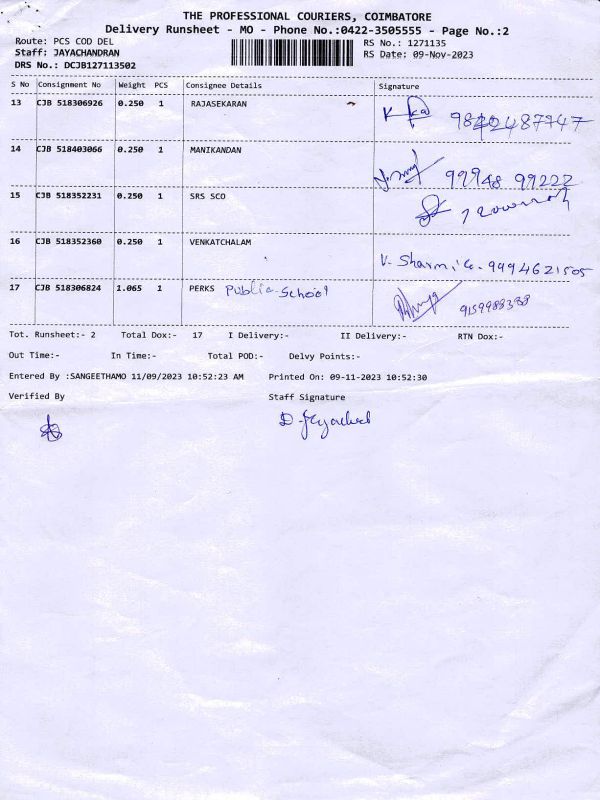 THE PROFESSIONAL COURIERS, COIMBATORE
Delivery Runsheet - MO - Phone No.:0422-3505555 - Page No.:2
Route: PCS COD DEL RS No.: 1271135
Staff: JAYACHANDRAN RS Date: 09-Nov-2023
DRS No.: DCJB127113502
S No Consignment No Weight PCS Consignee Details Signature
13 CJB 518306926 0.250 1 RAJASEKARAN
14 CJB 518403066 0.250 1 MANIKANDAN 99948 99222
15 CJB 518352231 0.250 1 SRS SCO
16 CJB 518352360 0.250 1 VENKATCHALAM V. Sharmila. 9994621505
17 CJB 518306824 1.065 1 PERKS Public School 9159988388
Tot. Runsheet:- 2 Total Dox:- 17 I Delivery:- II Delivery:- RTN Dox:-
Out Time:- In Time:- Total POD:- Delvy Points:-
Entered By :SANGEETHAMO 11/09/2023 10:52:23 AM Printed On: 09-11-2023 10:52:30
Verified By Staff Signature